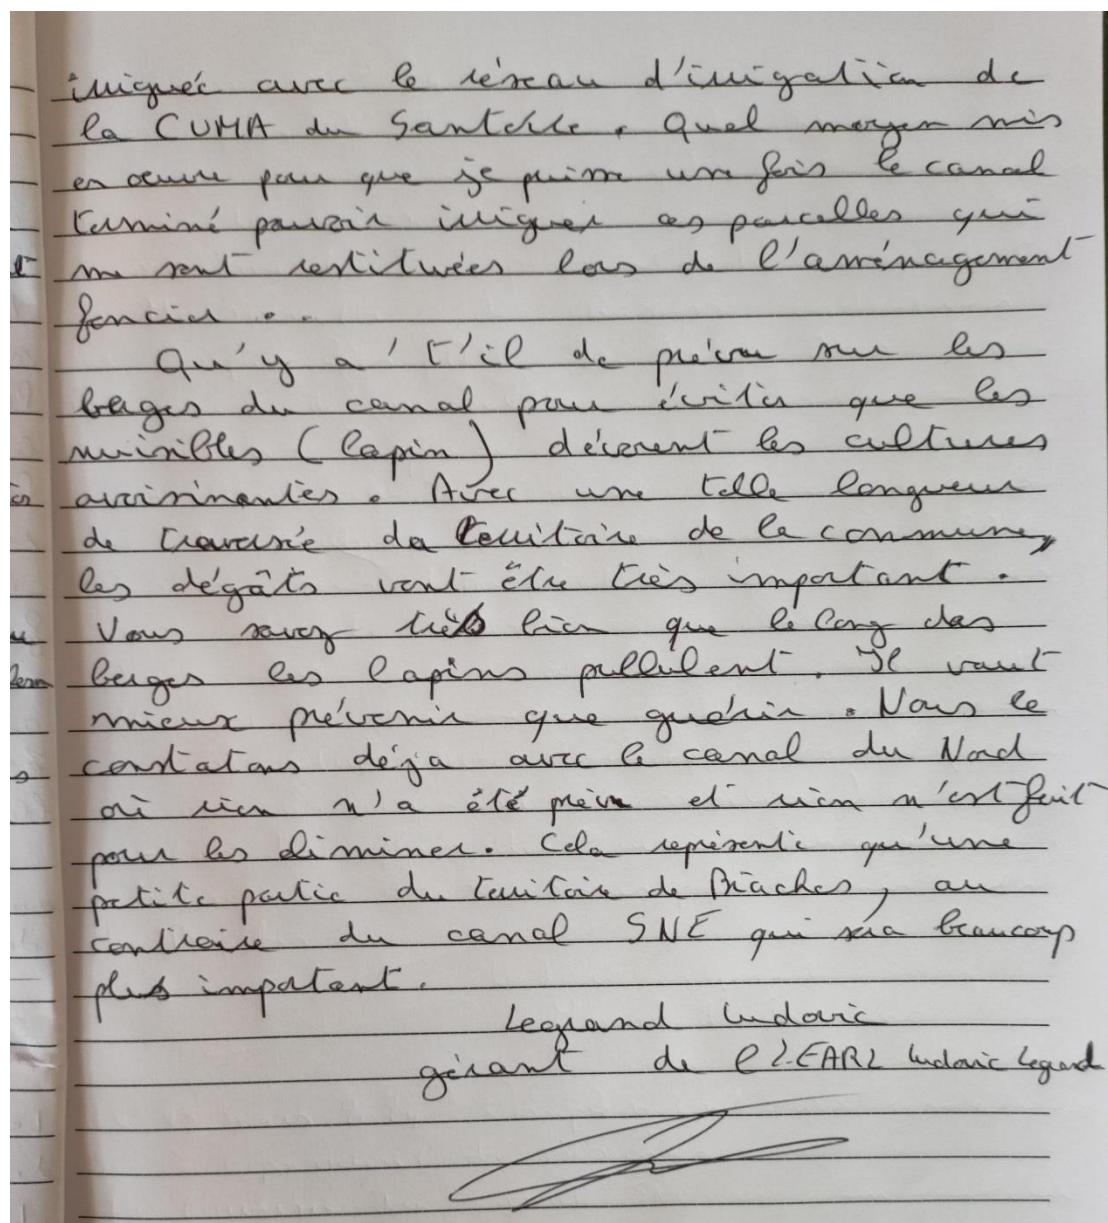 irriguée avec le réseau d'irrigation de
la CUMA du Santerre. Quel moyen mis
en oeuvre pour que je puisse une fois le canal
terminé pouvoir irriguer ces parcelles qui
me sont restituées lors de l'aménagement
foncier..
Qu'y a 't'il de prévu sur les
berges du canal pour éviter que les
nuisibles (lapin) dévorent les cultures
avoisinantes. Avec une telle longueur
de traversée du territoire de la commune,
les dégâts vont être très important.
Vous savez très bien que le long des
berges les lapins pullulent. Il vaut
mieux prévenir que guérir. Nous le
constatons déja avec le canal du Nord
où rien n'a été prévu et rien n'est fait
pour les éliminer. Cela représente qu'une
petite partie du territoire de Biaches, au
contraire du canal SNE qui sera beaucoup
plus important.
Legrand Ludovic
gérant de l'EARL Ludovic Legrand